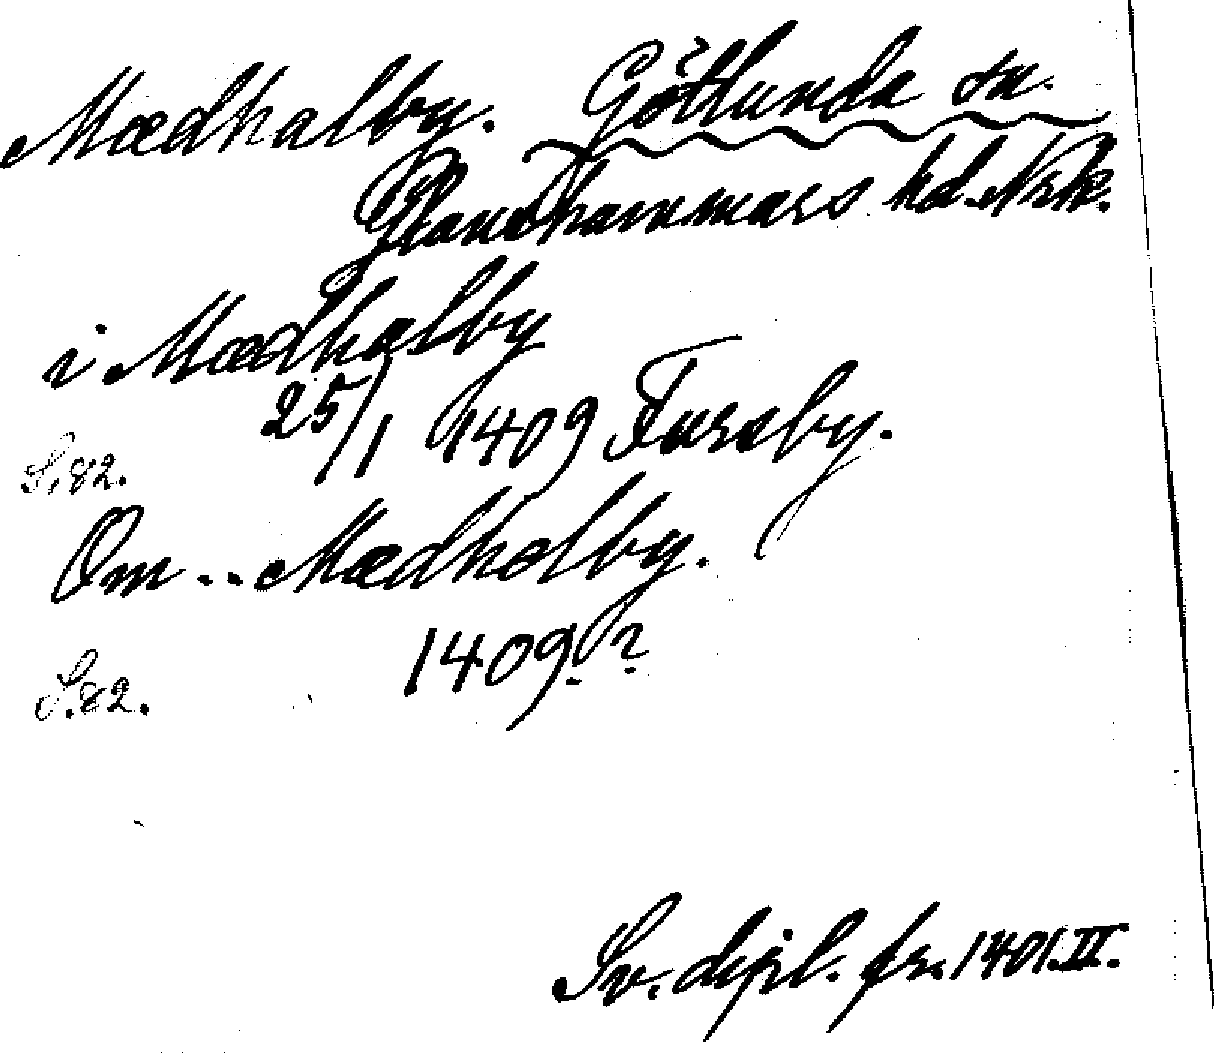 Mædhalby. Götlunda sn.
Glanshammars hd. Nrk.
i Mædhalby
25/1 1409 Fursby.
S. 82.
Om .. Mædhelby.
1409.?
S. 82.
Sv. dipl. fr. 1401. II.